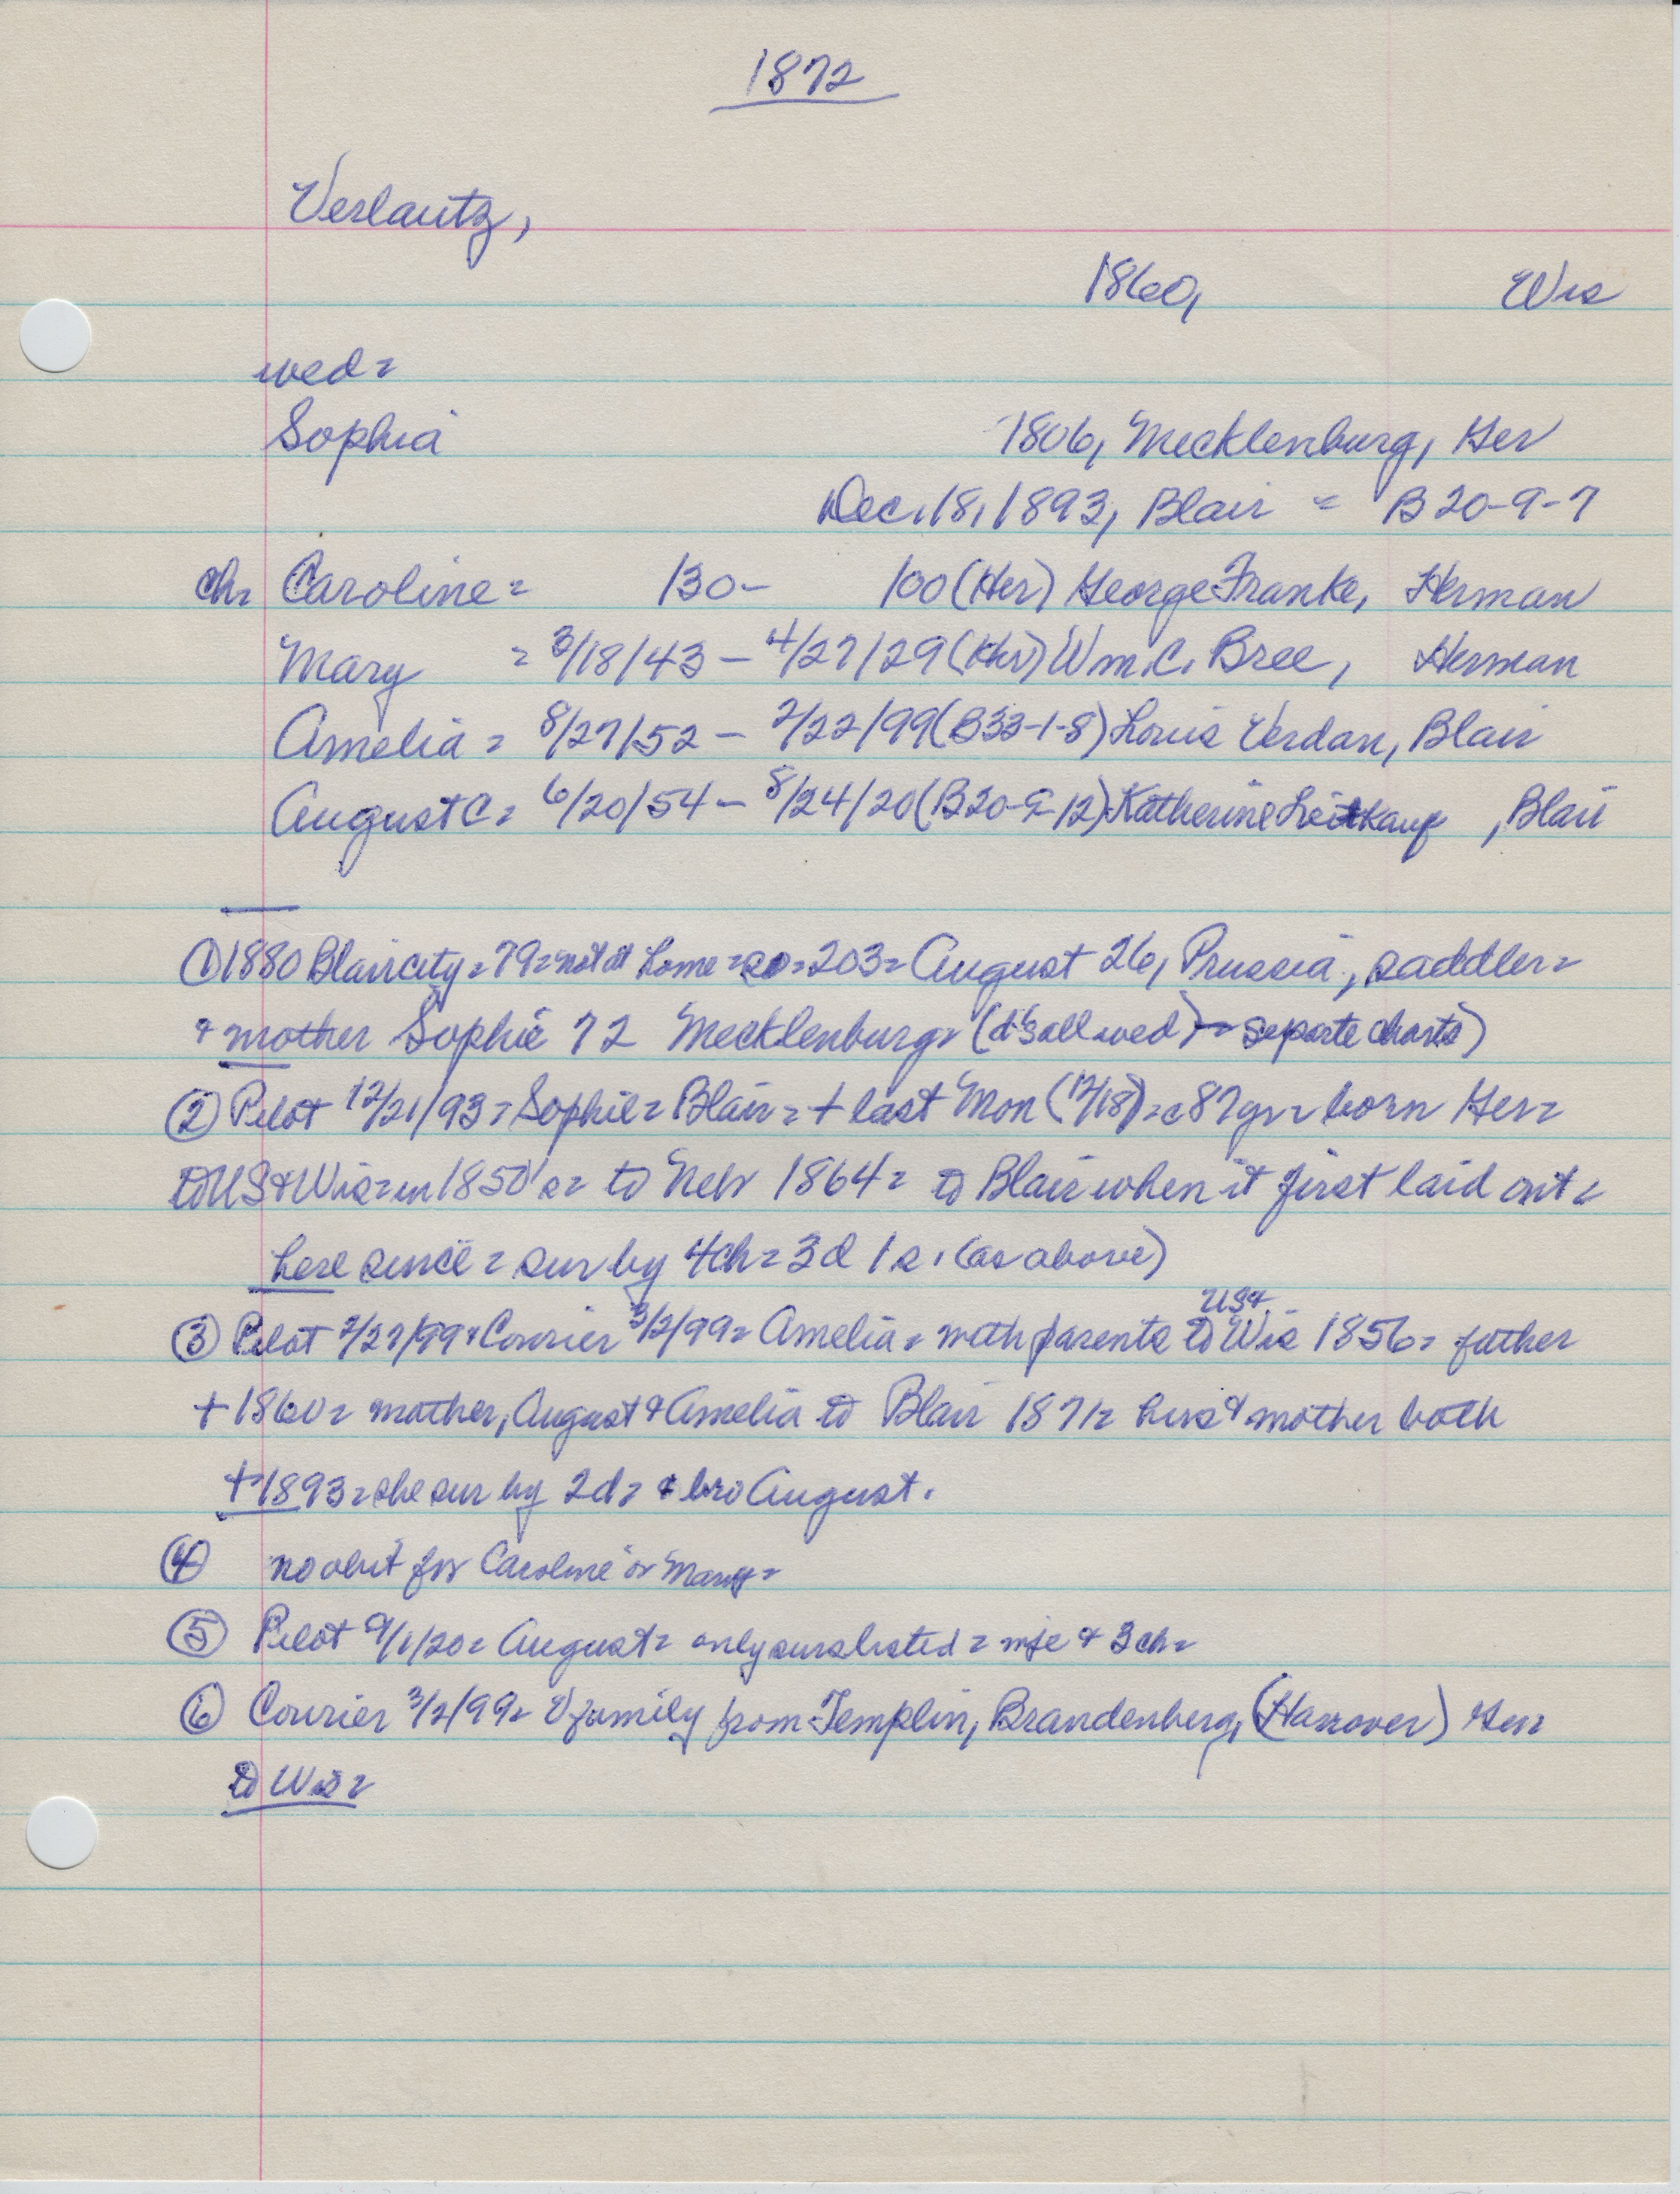 1872
Verlautz,
1860, Wis
wed=
Sophia 1806, Mecklenburg, Ger
Dec. 18, 1893, Blair = B 20-9-7
ch= Caroline = 130- 100 (Her) George Franke, Herman
Mary = 3/18/43 - 4/27/29 Wm. C. Bree, Herman
Amelia = 8/27/52 - 2/22/99 (B33-1-8) Louis Verdan, Blair
August C = 6/20/54 - 8/24/20 (B20-9-12) Katherine Leitkauf, Blair
① 1880 Blair city = 79 = not at home = 203 = August 26, Prussia, saddler =
& mother Sophie 72 Mecklenburg = (d's all wed) = separte charts)
② Pilot 12/21/93 = Sophie = Blair = + last Mon (12/18) = c 87 yr = born Ger =
to US & Wis = in 1850's = to Neb 1864 = to Blair when it first laid out =
here since = sur by 4 ch = 3 d 1 s. (as above)
③ Pilot 2/27/99 & Courier 3/2/99 = Amelia = with parents to US & Wis 1856 = father
+ 1860 = mother, August & Amelia to Blair 1871 = hus & mother both
+ 1893 = she sur by 2 d = & bro August.
④ no obit for Caroline or Mary =
⑤ Pilot 9/1/20 = August = only surs listed = wife & 3 ch =
⑥ Courier 3/2/99 = V family from Templin, Brandenberg, (Hanover) Ger =
to Wis =